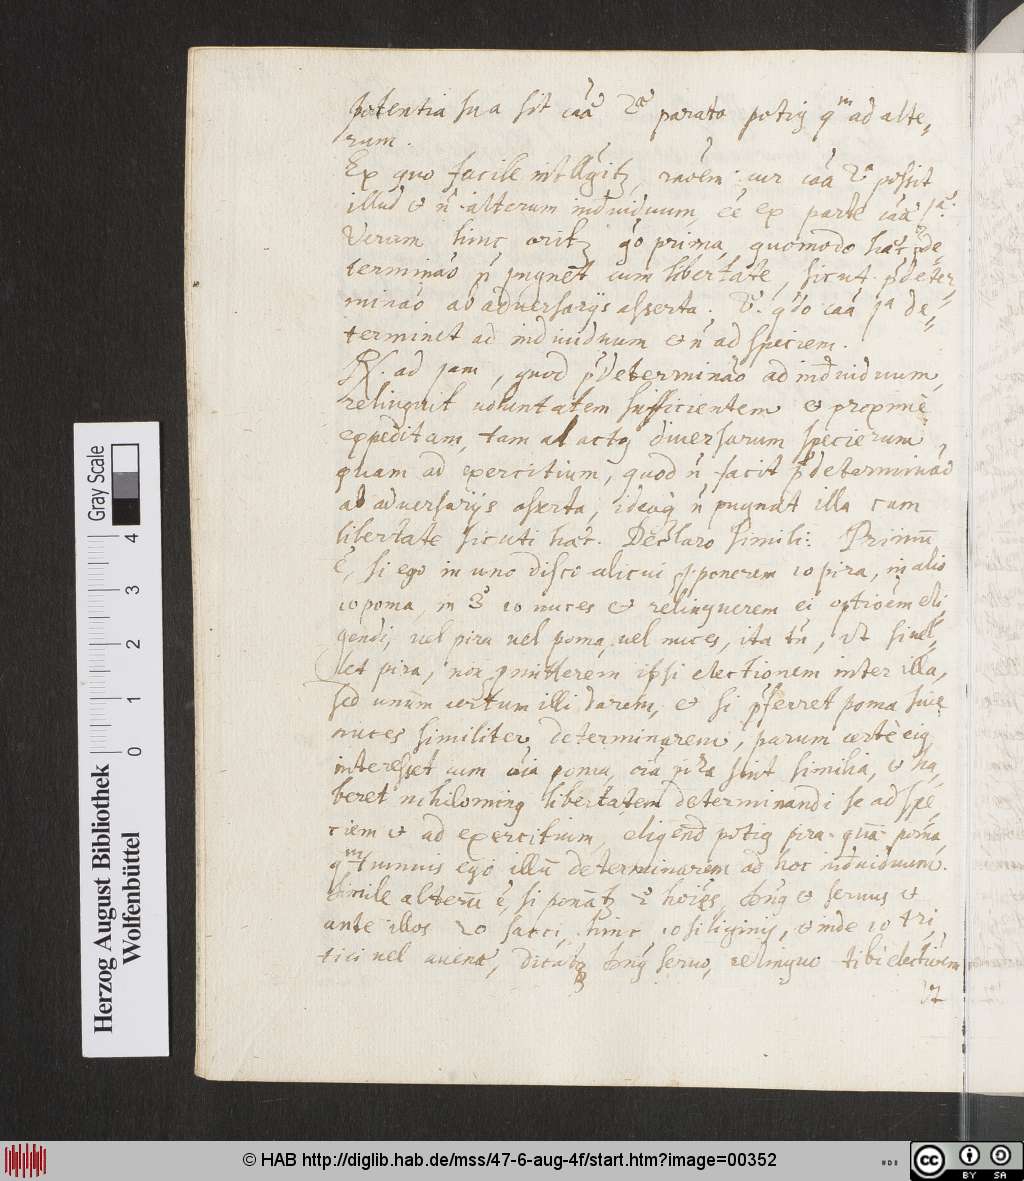 potentia sua sit caã 2ᵃ parato potiꝯ qᵐ ad alte,,
rum.
Ex quo facile intelligitꝛ, raõem: cur caã 2ᵃ possit
illud et ñ alterum individuum, eẽ ex parte caã 1ᵃ.
Verum hinc oritꝛ qõ prima, quomodo hæc pde,,
terminaõ ñ pugnet cum libertate, sicut pdeter,,
minaõ ab adversarijs asserta. 2ᵃ. qᵒdo caã 1ᵃ de,,
terminet ad individuum et ñ ad speciem.
R. ad jam, quod p̃determinaõ ad individuum,
relinquit voluntatem sufficientem et propriè
expeditam, tam ad actꝯ diversarum specierum
quam ad exercitium, quod ñ facit p̃determinaõ
ab adversarijs asserta, ideoq ñ pugnat illa cum
libertate sicuti hæc. Declaro simili: Primũ
ẽ, si ego in uno disco alicui pponerem 10 pira, in alio
10 poma, in 3º 10 nuces et relinquerem ei optioẽm eli,,
gendi, vel pira vel poma, vel nuces, ita tñ, ut si vel,,
let pira, non pmitterem ipsi electionem inter illa,
sed unum certum illi darem, et si p̃ferret poma sive
nuces similiter determinarem, parum certè eiꝯ
interesset cum oĩa poma, oĩa pira sint similia, et ha,,
beret nihilominꝯ libertatem determinandi se ad spe,,
ciem et ad exercitium, eligend potiꝯ pira quã poma,
qᵐtumvis ego illũ determinarem ad hoc individuum.
Simile alterũ ẽ, si ponãtꝛ 2 hoĩes, dñꝯ et servus et
ante illos 20 sacci, hinc 10 siliginis, et inde 10 tri,,
tici vel avenæ, dicatꝛ dñꝯ servo, relinquo tibi electioem
ut
Gray Scale
4
3
2
1
0
Herzog August Bibliothek
Wolfenbüttel
© HAB http://diglib.hab.de/mss/47-6-aug-4f/start.htm?image=00352
cc
BY SA